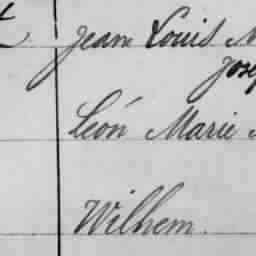 Jean Louis
Léon Marie
Wilhem